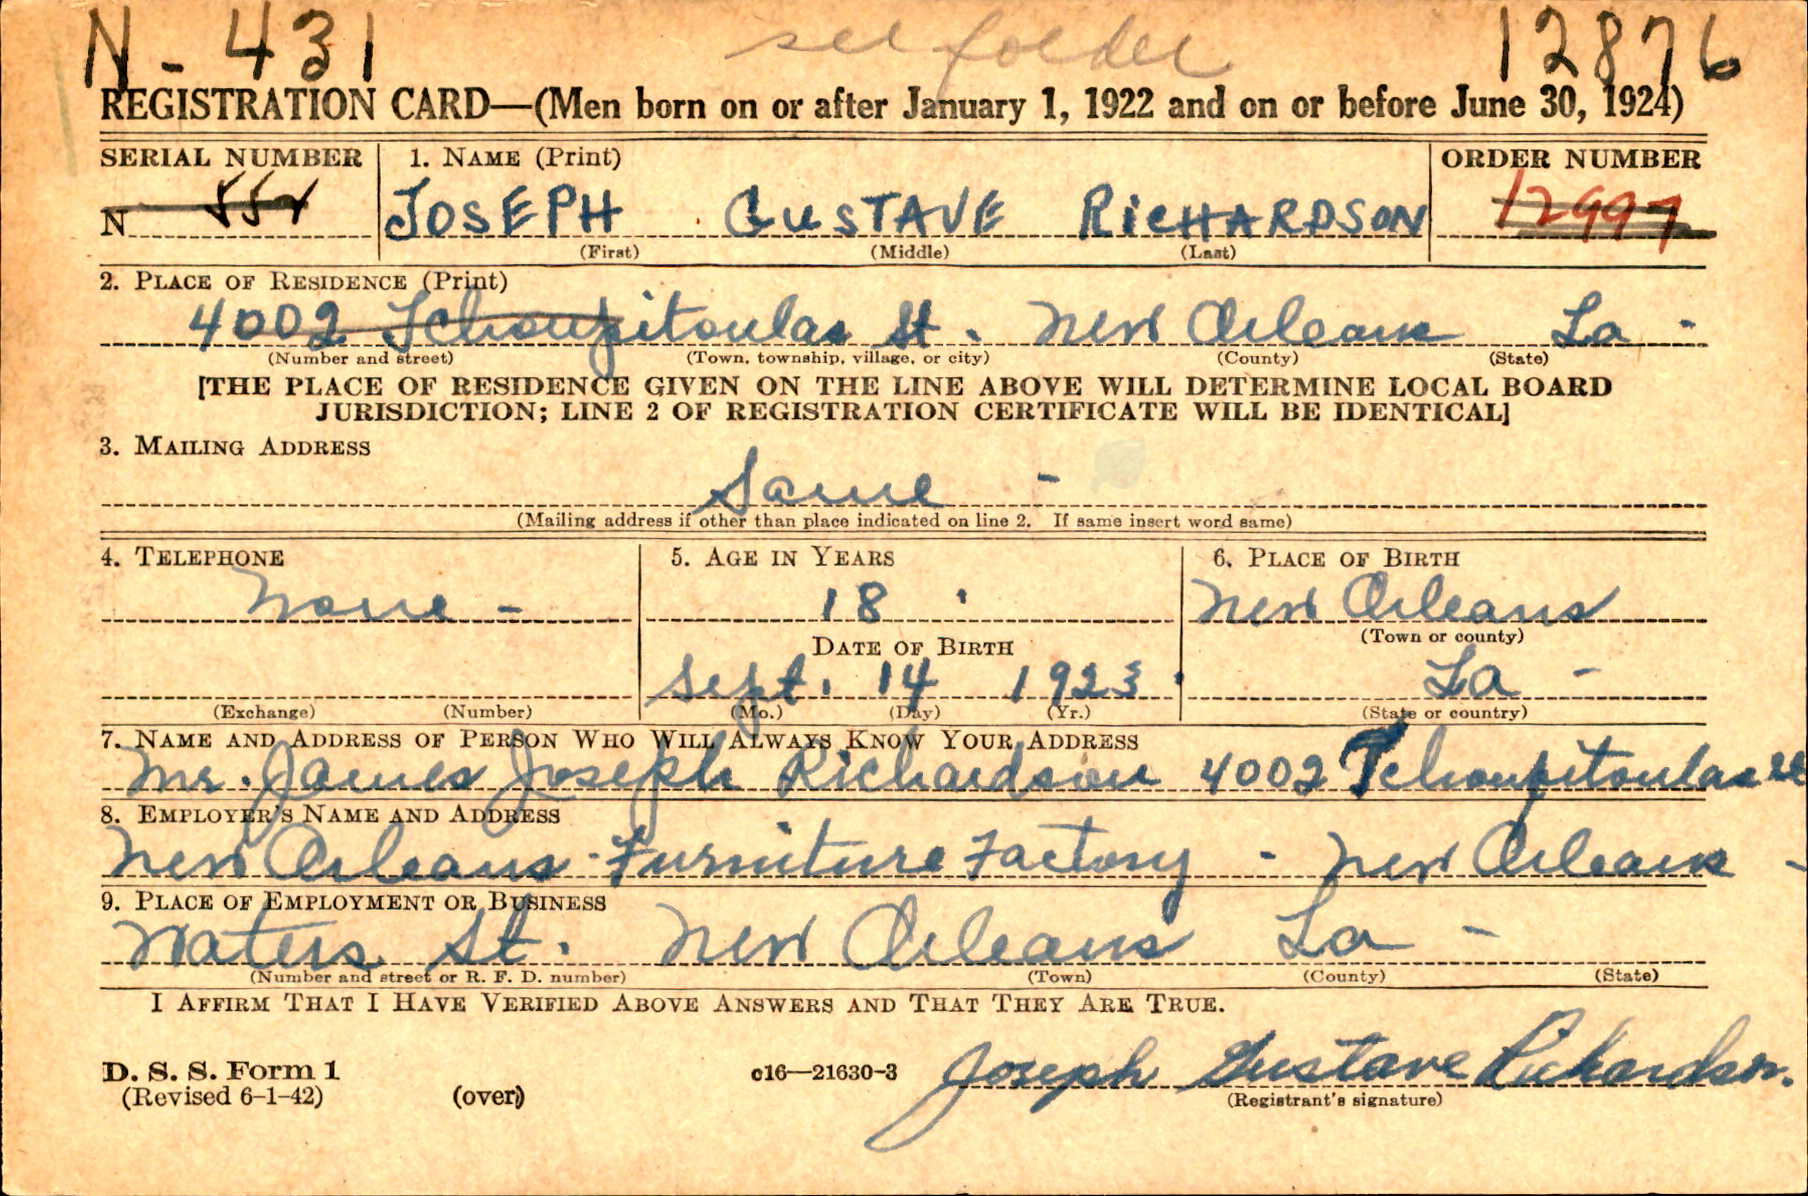 N-431 see folder 12876
REGISTRATION CARD—(Men born on or after January 1, 1922 and on or before June 30, 1924)
SERIAL NUMBER 1. NAME (Print) ORDER NUMBER
N 552 JOSEPH GUSTAVE RICHARDSON 12997
(First) (Middle) (Last)
2. PLACE OF RESIDENCE (Print)
4002 Tchoupitoulas St. New Orleans La -
(Number and street) (Town, township, village, or city) (County) (State)
[THE PLACE OF RESIDENCE GIVEN ON THE LINE ABOVE WILL DETERMINE LOCAL BOARD
JURISDICTION; LINE 2 OF REGISTRATION CERTIFICATE WILL BE IDENTICAL]
3. MAILING ADDRESS
Same -
(Mailing address if other than place indicated on line 2. If same insert word same)
4. TELEPHONE 5. AGE IN YEARS 6. PLACE OF BIRTH
None - 18 New Orleans
(Town or county)
DATE OF BIRTH
Sept. 14 1923 La -
(Exchange) (Number) (Mo.) (Day) (Yr.) (State or country)
7. NAME AND ADDRESS OF PERSON WHO WILL ALWAYS KNOW YOUR ADDRESS
Mr. James Joseph Richardson 4002 Tchoupitoulas
8. EMPLOYER'S NAME AND ADDRESS
New Orleans Furniture Factory - New Orleans -
9. PLACE OF EMPLOYMENT OR BUSINESS
Waters St. New Orleans La -
(Number and street or R. F. D. number) (Town) (County) (State)
I AFFIRM THAT I HAVE VERIFIED ABOVE ANSWERS AND THAT THEY ARE TRUE.
D. S. S. Form 1
(Revised 6-1-42) (over) c16—21630-3 Joseph Gustave Richardson.
(Registrant's signature)